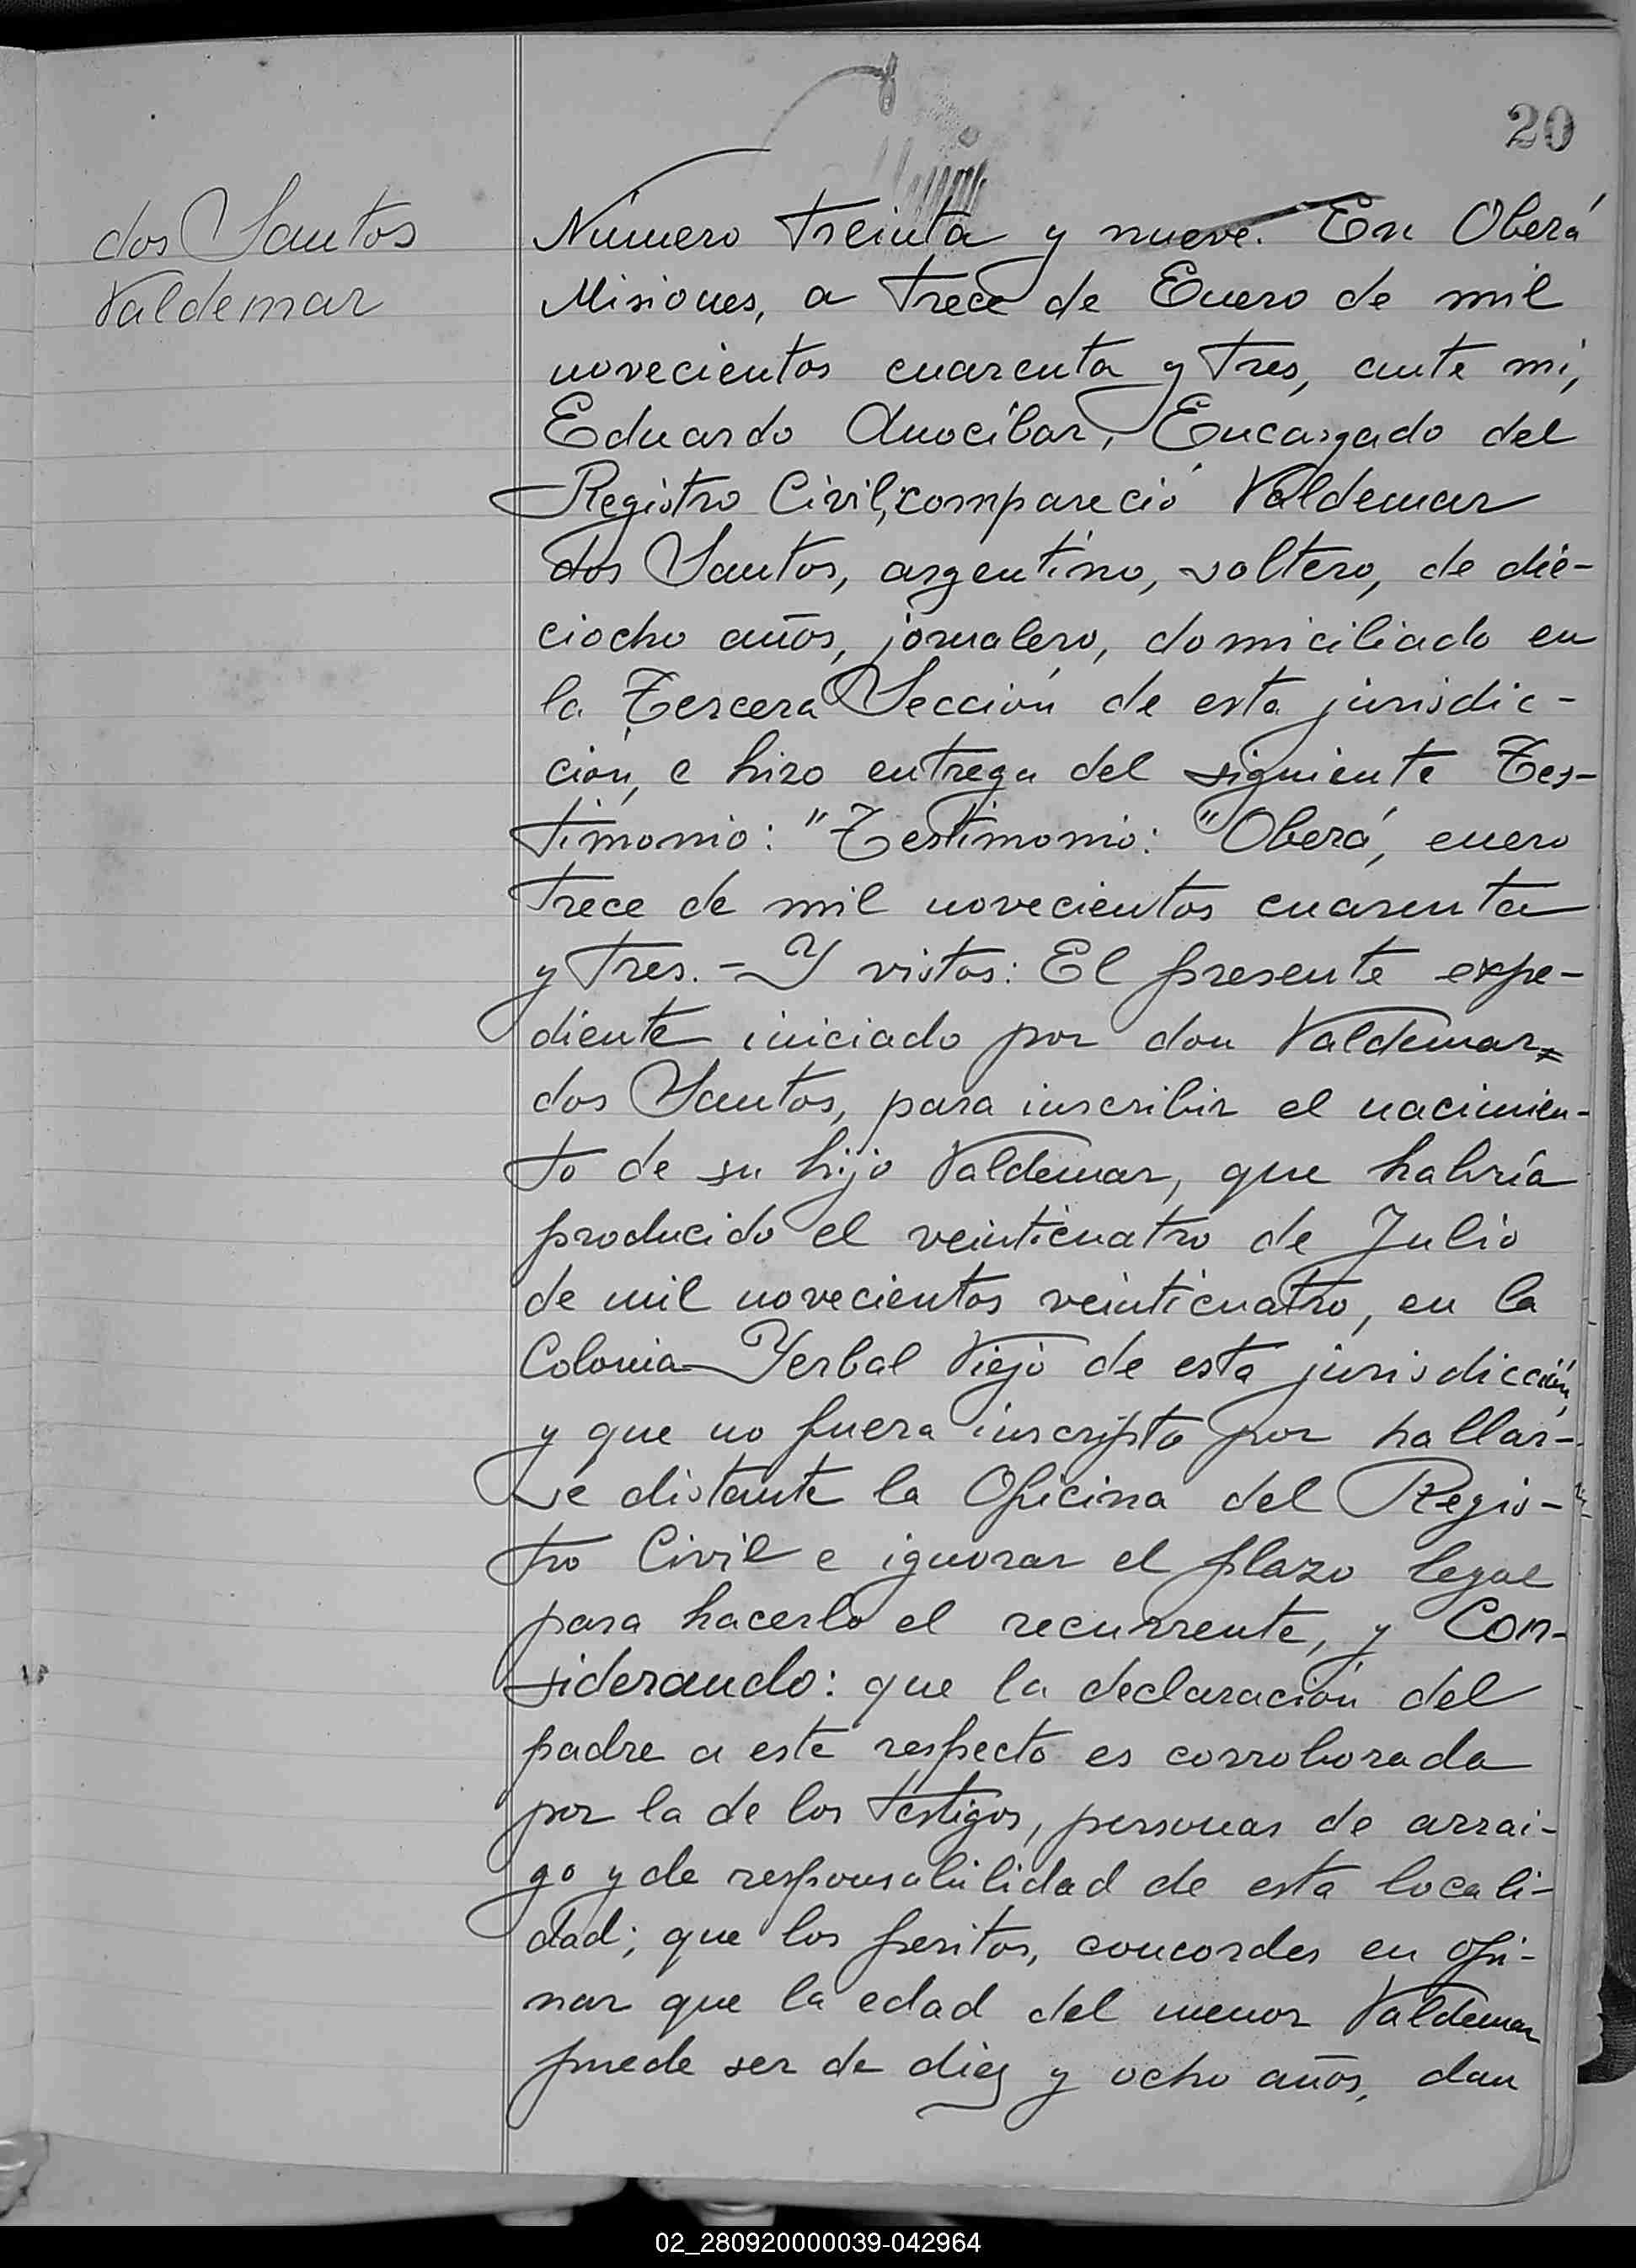 20
dos Santos
Valdemar
Número treinta y nueve. En Oberá
Misiones, a trece de Enero de mil
novecientos cuarenta y tres, ante mi,
Eduardo Anocibar, Encargado del
Registro Civil, compareció Valdemar
dos Santos, argentino, soltero, de die-
ciocho años, jornalero, domiciliado en
la Tercera Sección de esta jurisdic-
ción, e hizo entrega del siguiente Tes-
timonio: "Testimonio: "Oberá, enero
trece de mil novecientos cuarenta
y tres.- Y vistos: El presente expe-
diente iniciado por don Valdemar=
dos Santos, para inscribir el nacimien-
to de su hijo Valdemar, que habría
producido el veinticuatro de Julio
de mil novecientos veinticuatro, en la
Colonia Yerbal Viejo de esta jurisdicción,
y que no fuera inscripto por hallar-
se distante la Oficina del Regis-
tro Civil e ignorar el plazo legal
para hacerlo el recurrente, y Con-
siderando: que la declaración del
padre a este respecto es corroborada
por la de los testigos, personas de arrai-
go y de responsabilidad de esta locali-
dad; que los peritos, concordes en opi-
nar que la edad del menor Valdemar
puede ser de diez y ocho años, dan
02_280920000039-042964